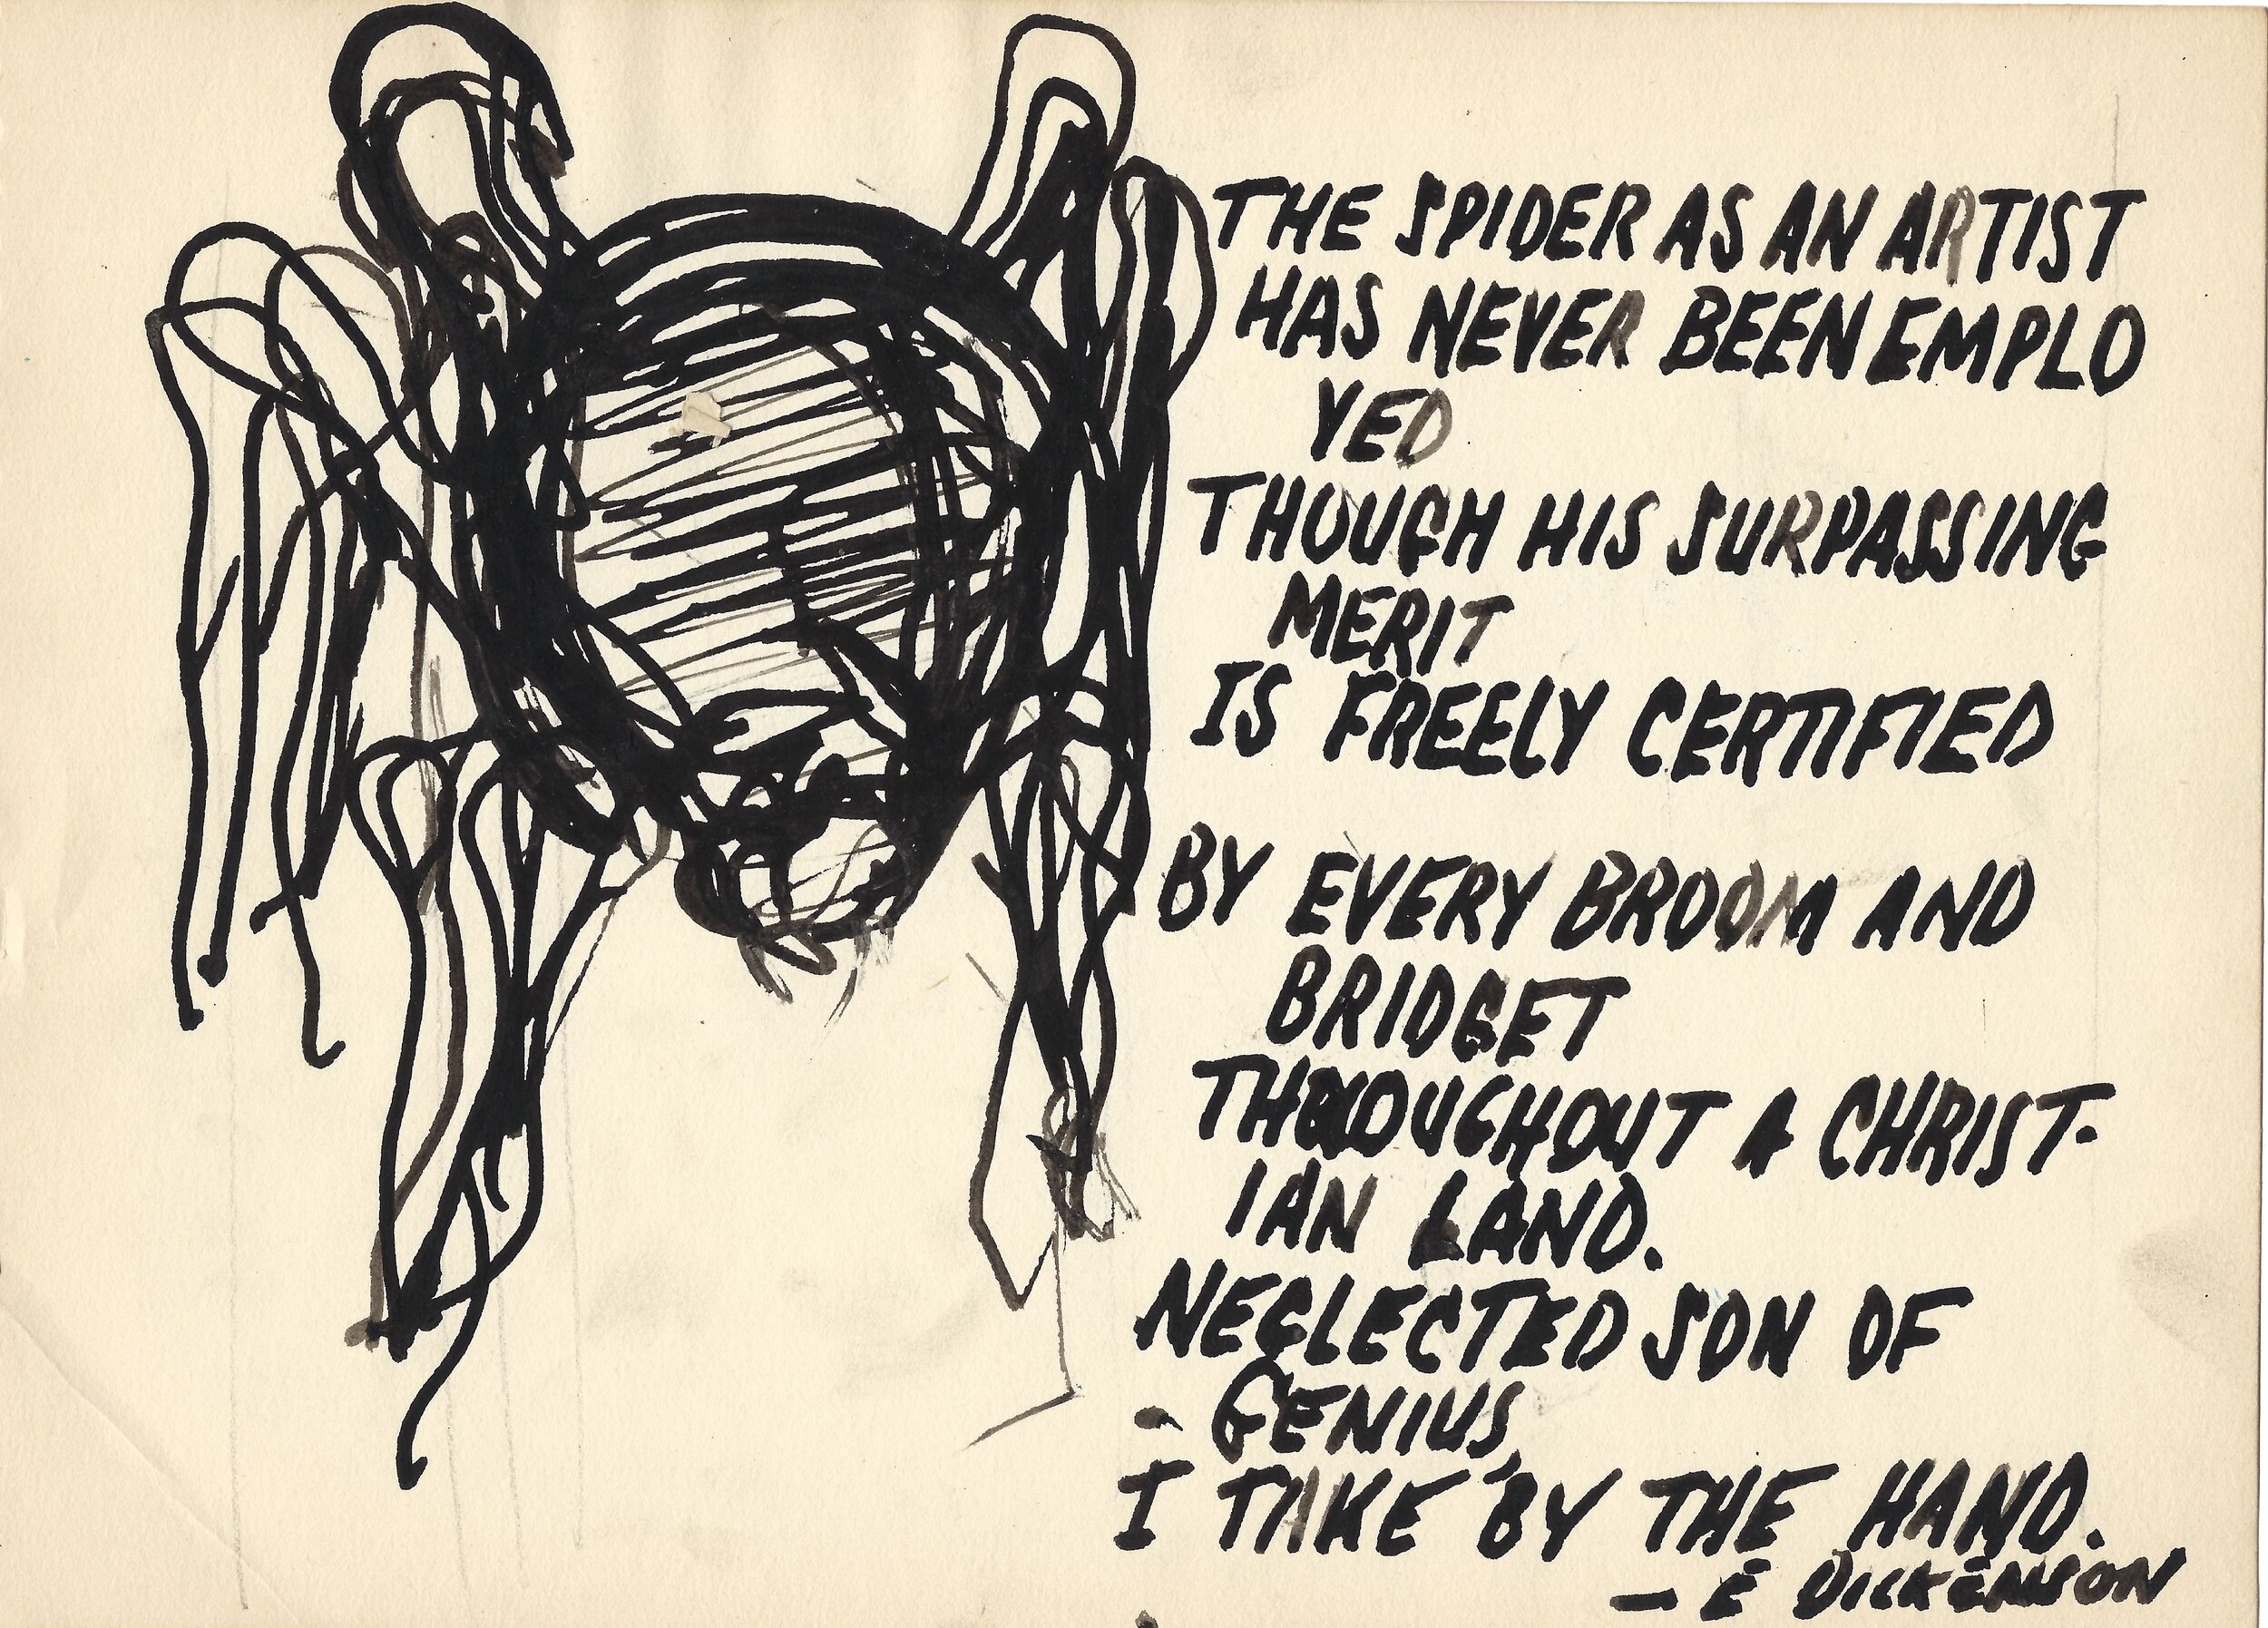 THE SPIDER AS AN ARTIST
HAS NEVER BEEN EMPLO
YED
THOUGH HIS SURPASSING
MERIT
IS FREELY CERTIFIED
BY EVERY BROOM AND
BRIDGET
THROUGHOUT A CHRIST-
IAN LAND.
NEGLECTED SON OF
- GENIUS,
I TAKE BY THE HAND.
— E DICKENSON